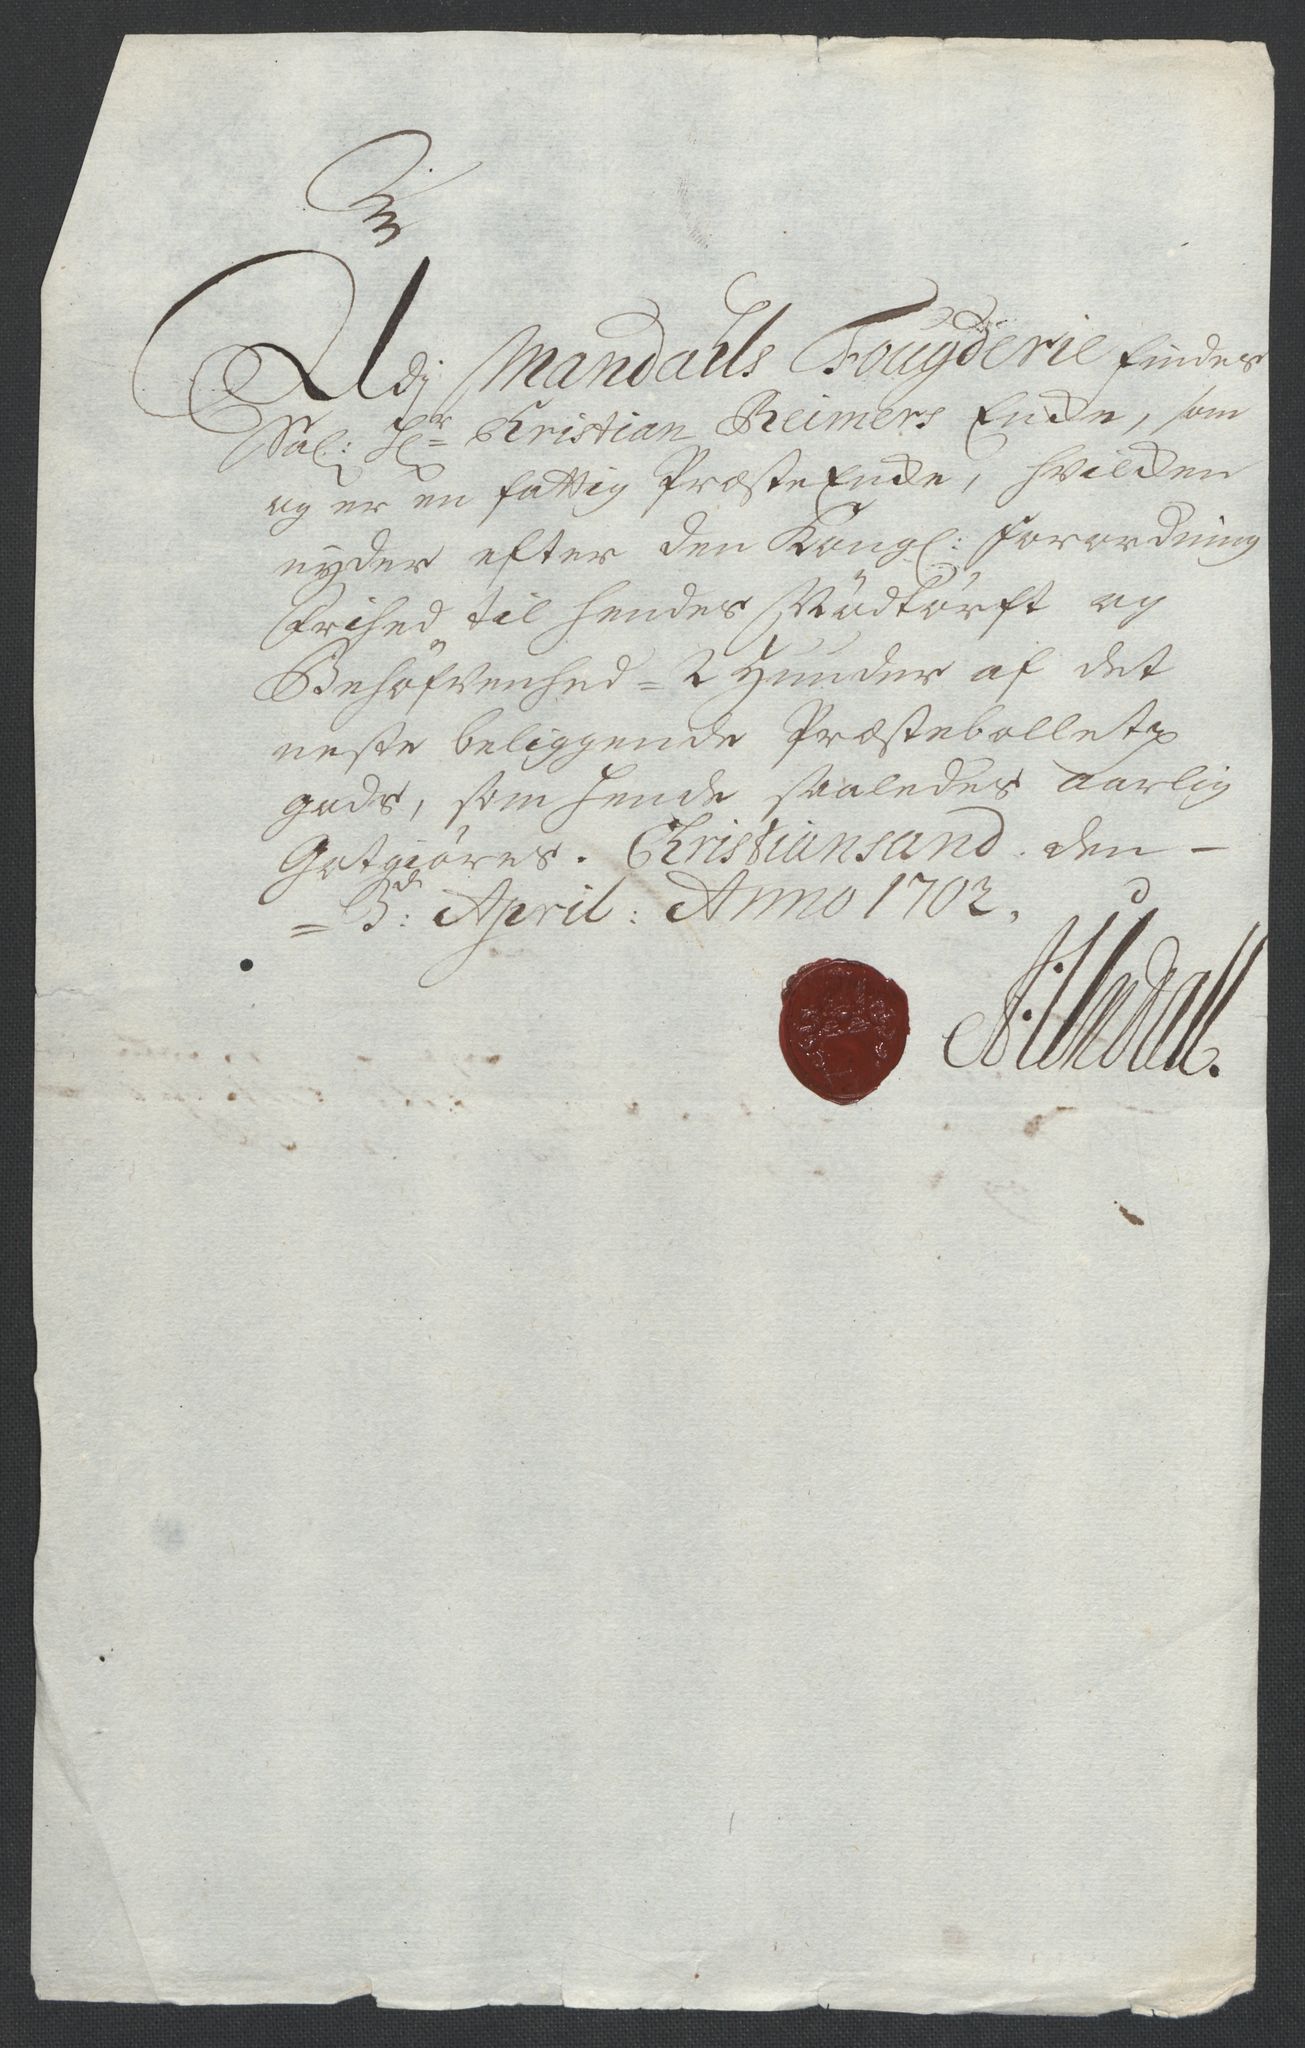 Udj Mandahls Fougderie findes
Sal: Hr Kristian Reimers Encke, som
og er en fattig Præste Encke, hvilcken
nyder efter den Kongl: forordning
Frihed til hendes Nödtörft og
Behöfvenhed = 2 Hunder af det
neste beliggende Præstebollet
gods, som hende saaledes aarlig
Gotgiöres. Christiansand den -
= 3de: April: Anno 1702.